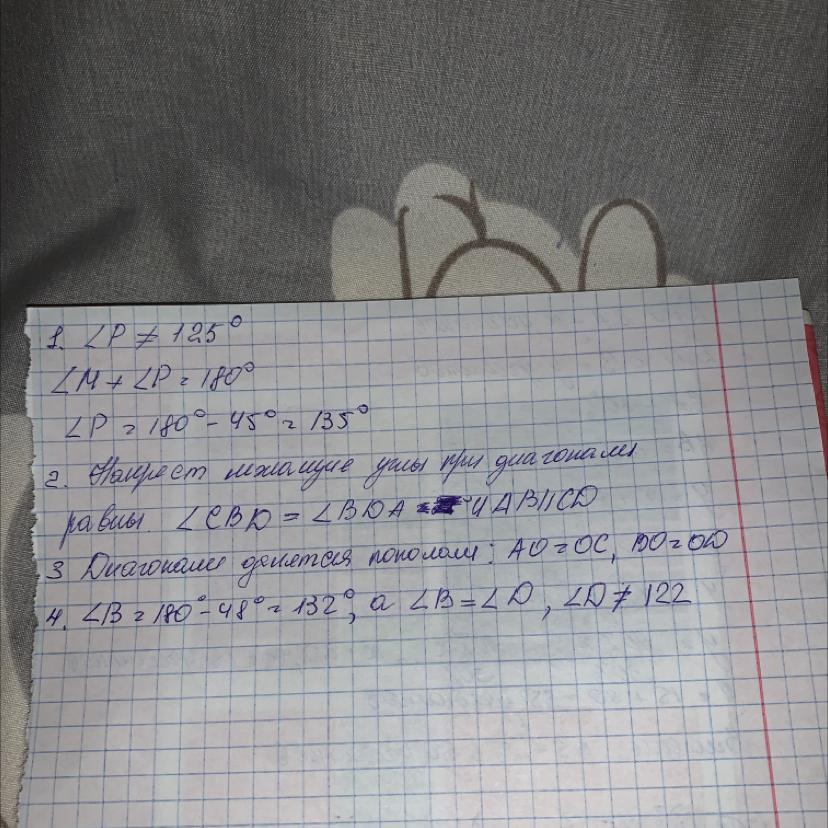 1. ∠P ≠ 125°
∠M + ∠P = 180°
∠P = 180° - 45° = 135°
2. Накрест лежащие углы при диагонали
равны ∠CBD = ∠BDA и AB||CD
3 Диагонали делятся пополам: AO = OC, BO = OD
4. ∠B = 180° - 48° = 132°, а ∠B = ∠D, ∠D ≠ 122